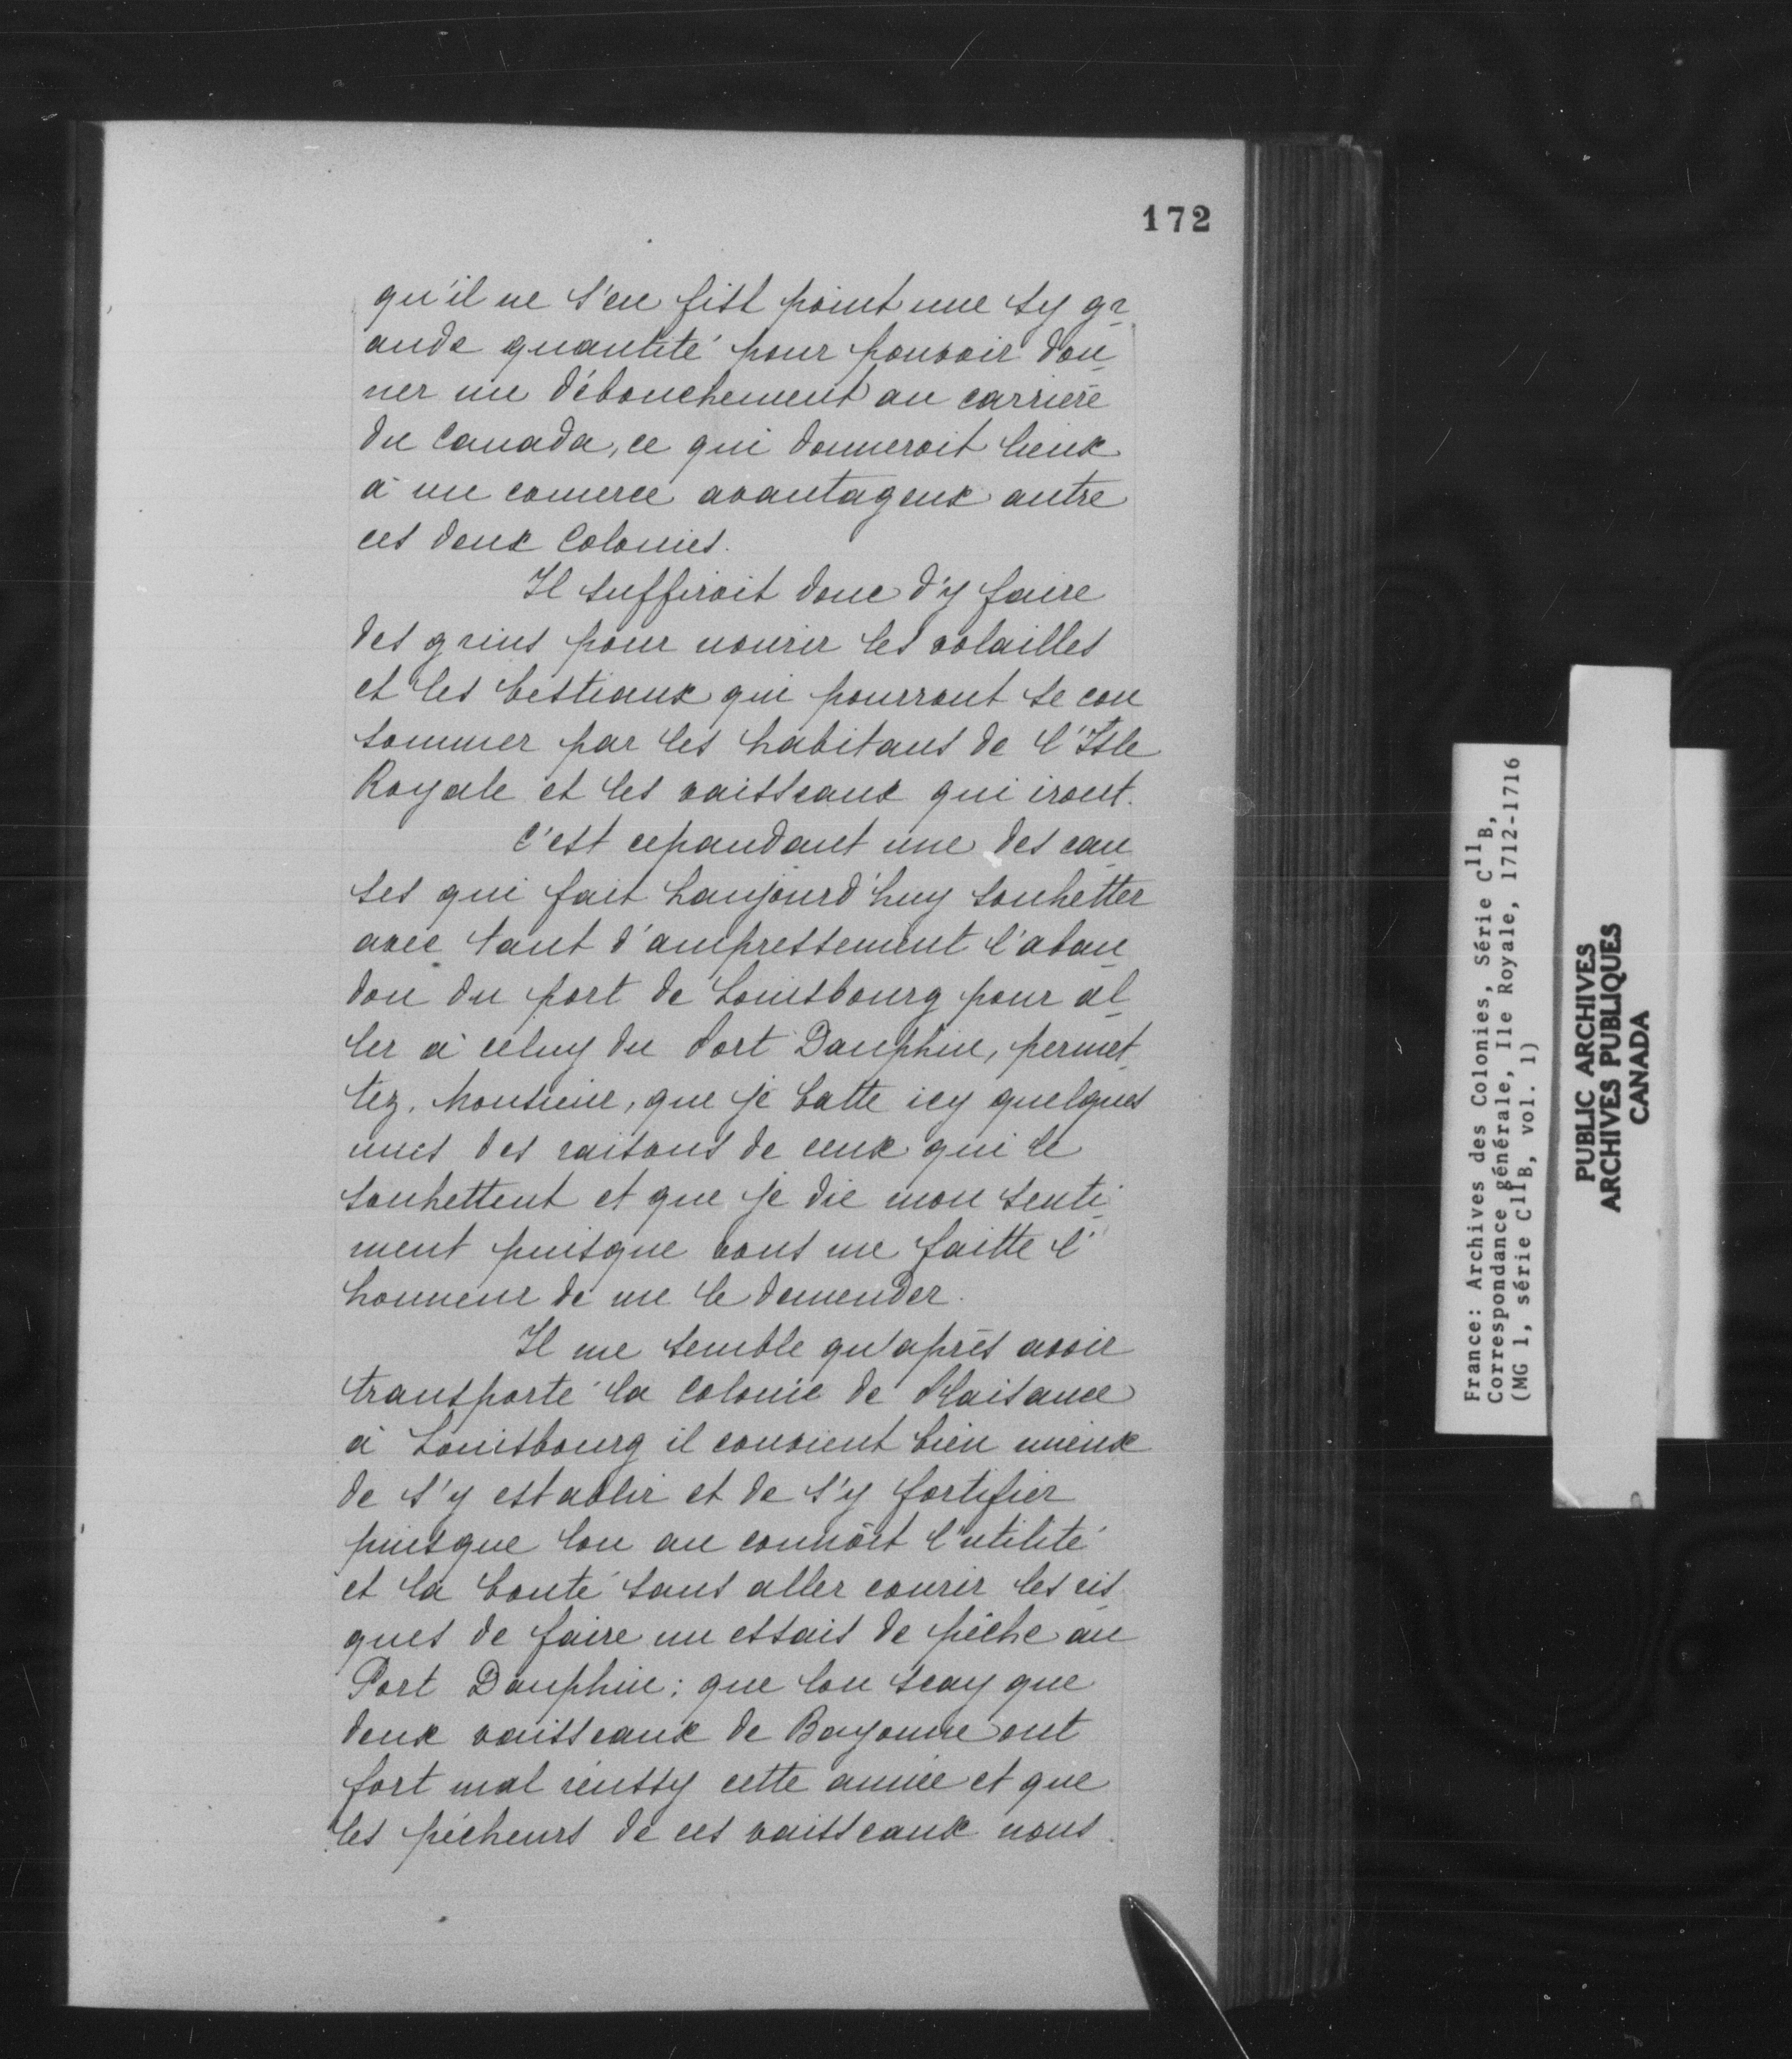 172
qu'il ne s'en fist point une sy gr-
ande quantité pour pouvoir don-
ner un débouchement au carriere
du Canada, ce qui donneroit lieux
à un comerce avantageux antre
ces deux Colonies.
Il suffiroit donc d'y faire
des grins pour nourir les volailles
et les bestiaux qui pourront se con
sommer par les habitans de l'Isle
Royale et les vaisseaux qui iront.
C'est cepandant une des cau-
ses qui fait haujourd'huy souhetter
avec tant d'ampressement l'aban-
don du port de Louisbourg pour al-
ler à celuy du Port Dauphin, permet-
tez, Monsieur, que je batte icy quelques
unes des raisons de ceux qui le
souhettent et que je die mon senti-
ment puisque vous me faitte l'
honneur de me le demender.
Il me semble qu'après avoir
transporté la colonie de Plaisance
à Louisbourg il convient bien mieux
de s'y establir et de s'y fortifier
puisque lon an connôit l'utilité
et la bonté sans aller courir les ris-
ques de faire un essais de pêche au
Port Dauphin; que lon scay que
deux vaisseaux de Bayonne ont
fort mal réussy cette année et que
les pécheurs de ces vaisseaux nous
France: Archives des Colonies, Série C11B,
Correspondance générale, Ile Royale, 1712-1716
(MG 1, série C11B, vol. 1)
PUBLIC ARCHIVES
ARCHIVES PUBLIQUES
CANADA